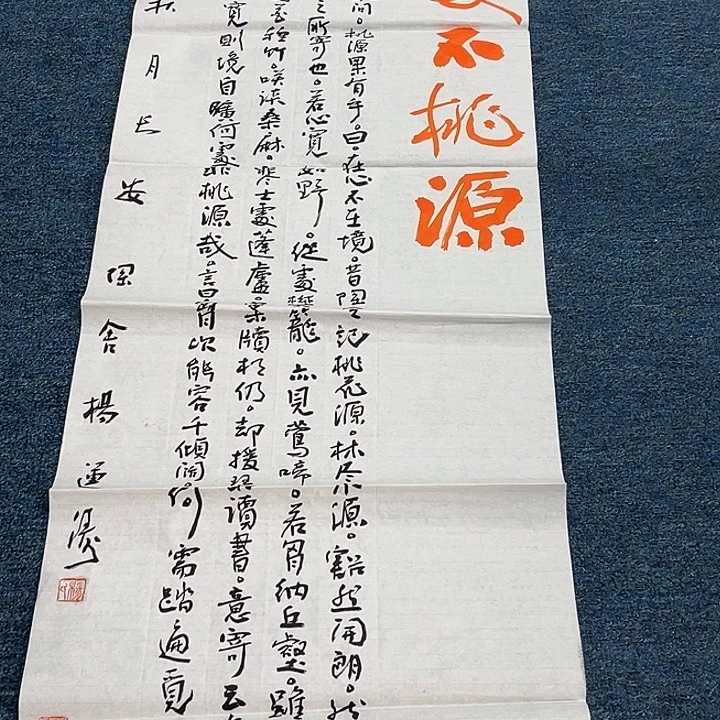 不桃源
問。桃源果有乎。曰。在心不在境。昔陶公記桃花源。林尽源。豁然开朗。然
之所寄也。若心寬如野。從處樊籠。亦見鶯啼。若胸納丘壑。雖
種竹。談桑麻。寒士處蓬廬。案牘相仍。却援琴讀書。意寄云
寬則境自曠。何處非桃源哉。言曰胸次能容千傾闊。何需踏遍覓
秋月长安 困舍楊